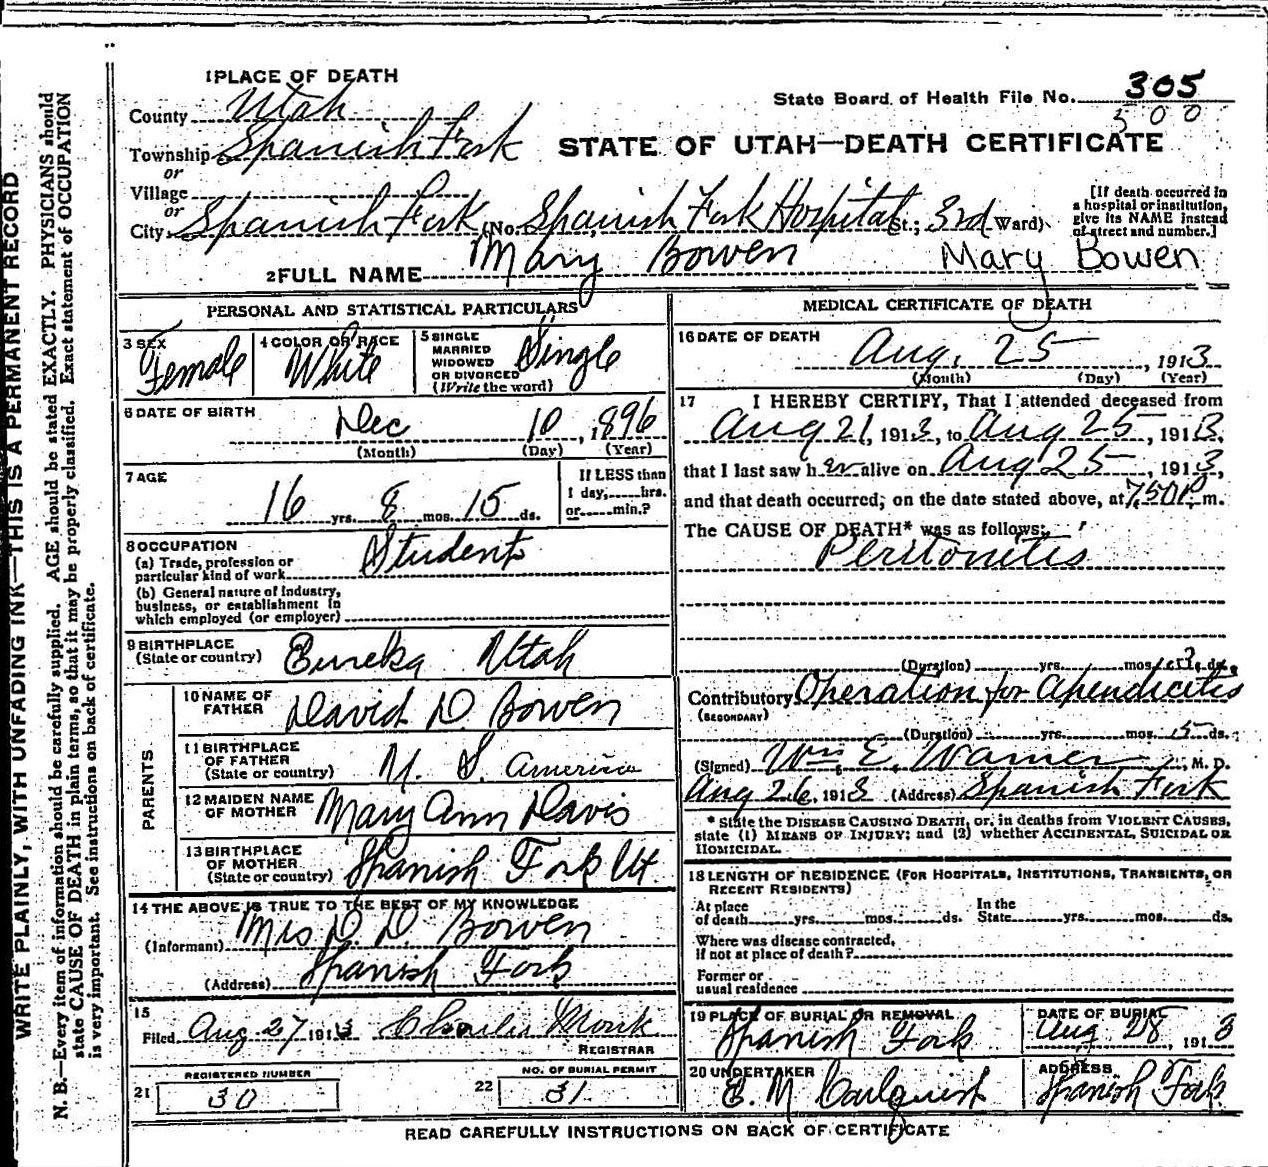 1 PLACE OF DEATH
County Utah
State Board of Health File No. 305
500
Township Spanish Fork
STATE OF UTAH—DEATH CERTIFICATE
or
Village
or
City Spanish Fork (No. Spanish Fork Hospital St.; 3rd Ward)
[If death occurred in a hospital or institution, give its NAME instead of street and number.]
2 FULL NAME Mary Bowen Mary Bowen
PERSONAL AND STATISTICAL PARTICULARS
3 SEX Female
4 COLOR OR RACE White
5 SINGLE MARRIED WIDOWED OR DIVORCED (Write the word) Single
6 DATE OF BIRTH Dec 10, 1896
(Month) (Day) (Year)
7 AGE 16 yrs. 8 mos. 15 ds.
If LESS than 1 day, hrs. or min.?
8 OCCUPATION
(a) Trade, profession or particular kind of work Student
(b) General nature of industry, business, or establishment in which employed (or employer)
9 BIRTHPLACE (State or country) Eureka Utah
PARENTS
10 NAME OF FATHER David D. Bowen
11 BIRTHPLACE OF FATHER (State or country) U. S. America
12 MAIDEN NAME OF MOTHER Mary Ann Davis
13 BIRTHPLACE OF MOTHER (State or country) Spanish Fork Ut
14 THE ABOVE IS TRUE TO THE BEST OF MY KNOWLEDGE
(Informant) Mrs D. D. Bowen
(Address) Spanish Fork
15
Filed Aug 27 1913 Charles Monk
REGISTRAR
21 REGISTERED NUMBER 30
22 NO. OF BURIAL PERMIT 31
MEDICAL CERTIFICATE OF DEATH
16 DATE OF DEATH Aug. 25, 1913
(Month) (Day) (Year)
17 I HEREBY CERTIFY, That I attended deceased from
Aug 21, 1913, to Aug 25, 1913,
that I last saw her alive on Aug 25, 1913,
and that death occurred, on the date stated above, at 7,50 P m.
The CAUSE OF DEATH* was as follows:
Peritonitis
(Duration) yrs. mos. ds.
Contributory Operation for Apendicitis
(SECONDARY)
(Duration) yrs. mos. 5 ds.
(Signed) Wm E. Warner, M. D.
Aug 26, 1913 (Address) Spanish Fork
* State the DISEASE CAUSING DEATH, or, in deaths from VIOLENT CAUSES,
state (1) MEANS OF INJURY; and (2) whether ACCIDENTAL, SUICIDAL OR
HOMICIDAL.
18 LENGTH OF RESIDENCE (FOR HOSPITALS, INSTITUTIONS, TRANSIENTS, OR
RECENT RESIDENTS)
At place of death yrs. mos. ds. In the State yrs. mos. ds.
Where was disease contracted,
if not at place of death?
Former or
usual residence
19 PLACE OF BURIAL OR REMOVAL Spanish Fork
DATE OF BURIAL Aug 28, 1913
20 UNDERTAKER E. M Carlquist
ADDRESS Spanish Fork
READ CAREFULLY INSTRUCTIONS ON BACK OF CERTIFICATE
WRITE PLAINLY, WITH UNFADING INK—THIS IS A PERMANENT RECORD
N. B.—Every item of information should be carefully supplied. AGE should be stated EXACTLY. PHYSICIANS should
state CAUSE OF DEATH in plain terms, so that it may be properly classified. Exact statement of OCCUPATION
is very important. See instructions on back of certificate.